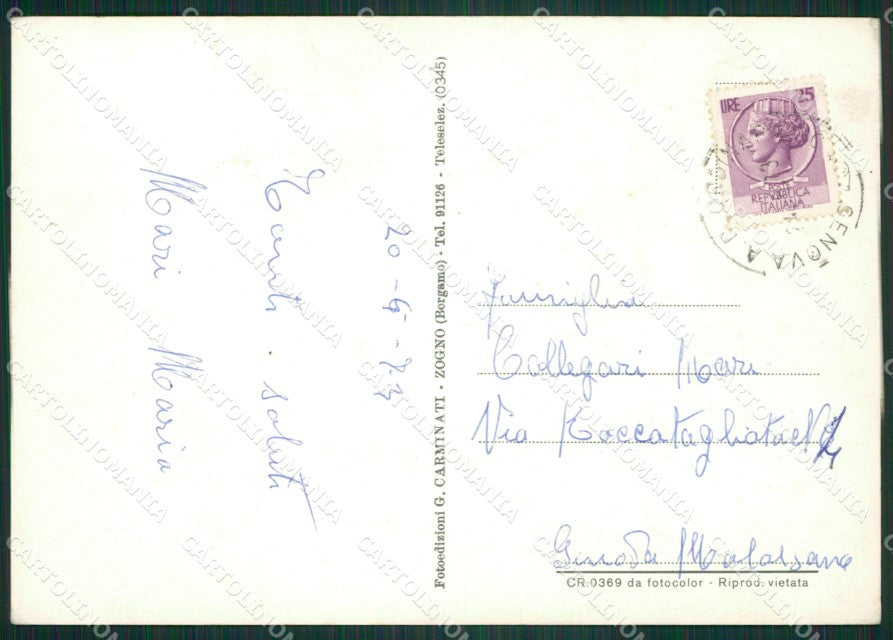 20-6-73
Tanti saluti
Mari Maria
Fotoedizioni G. CARMINATI - ZOGNO (Bergamo) - Tel. 91126 - Teleselez. (0345)
LIRE 25
POSTE
REPVBBLICA
ITALIANA
GENOVA A.D.
Famiglia
Callegari Mari
Via Roccatagliata
Genova Molassana
CR.0369 da fotocolor - Riprod. vietata
CARTOLINOMANIA